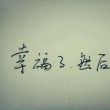 幸福了.然后